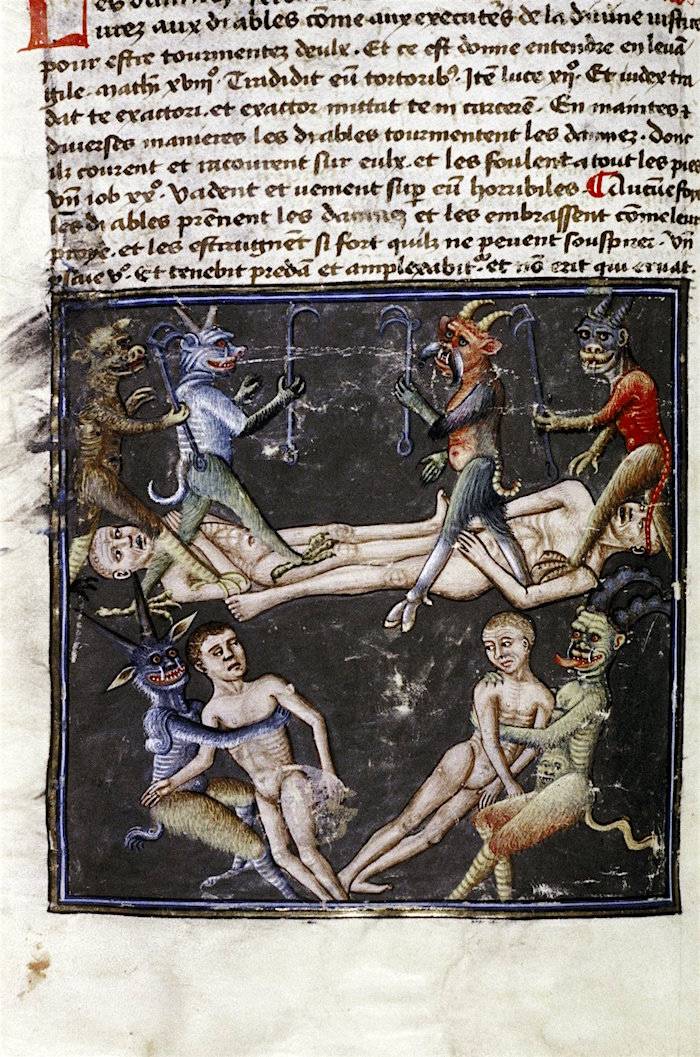 Les
livrez aux diables cōme aux executēs de la diuine iustice
pour estre tourmentez deulx. Et ce est donne entendre en leuā
gile. mathi xviijᵉ. Tradidit eū tortoribꝰ. Itē luce xijᵉ. Et iudex tra
dat te exactori. et exactor mittat te in carcerē. En maintes ⁊
diuerses manieres les diables tourmentent les dannez. Dont
ilz courent et racourent sur eulx. et les foulent a tout les pies
Vn̄ iob xxᵉ. Vadent et uenient sup̄ eū horribiles. ¶ Aucūe fois
les diables prēnent les dannez et les embrassent cōme leur
proye. et les estraignēt si fort quilz ne peuent souspirer. Vn̄
ysaie vᵉ. Et tenebit predā et amplexabitᵘʳ. et nō erit qui eruat.